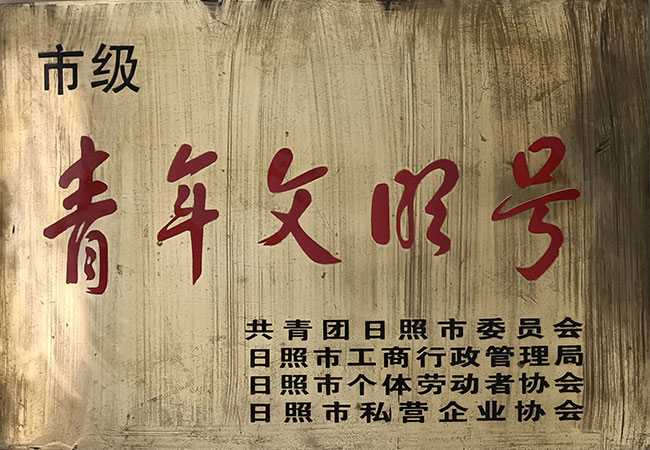 市级
青年文明号
共青团日照市委员会
日照市工商行政管理局
日照市个体劳动者协会
日照市私营企业协会